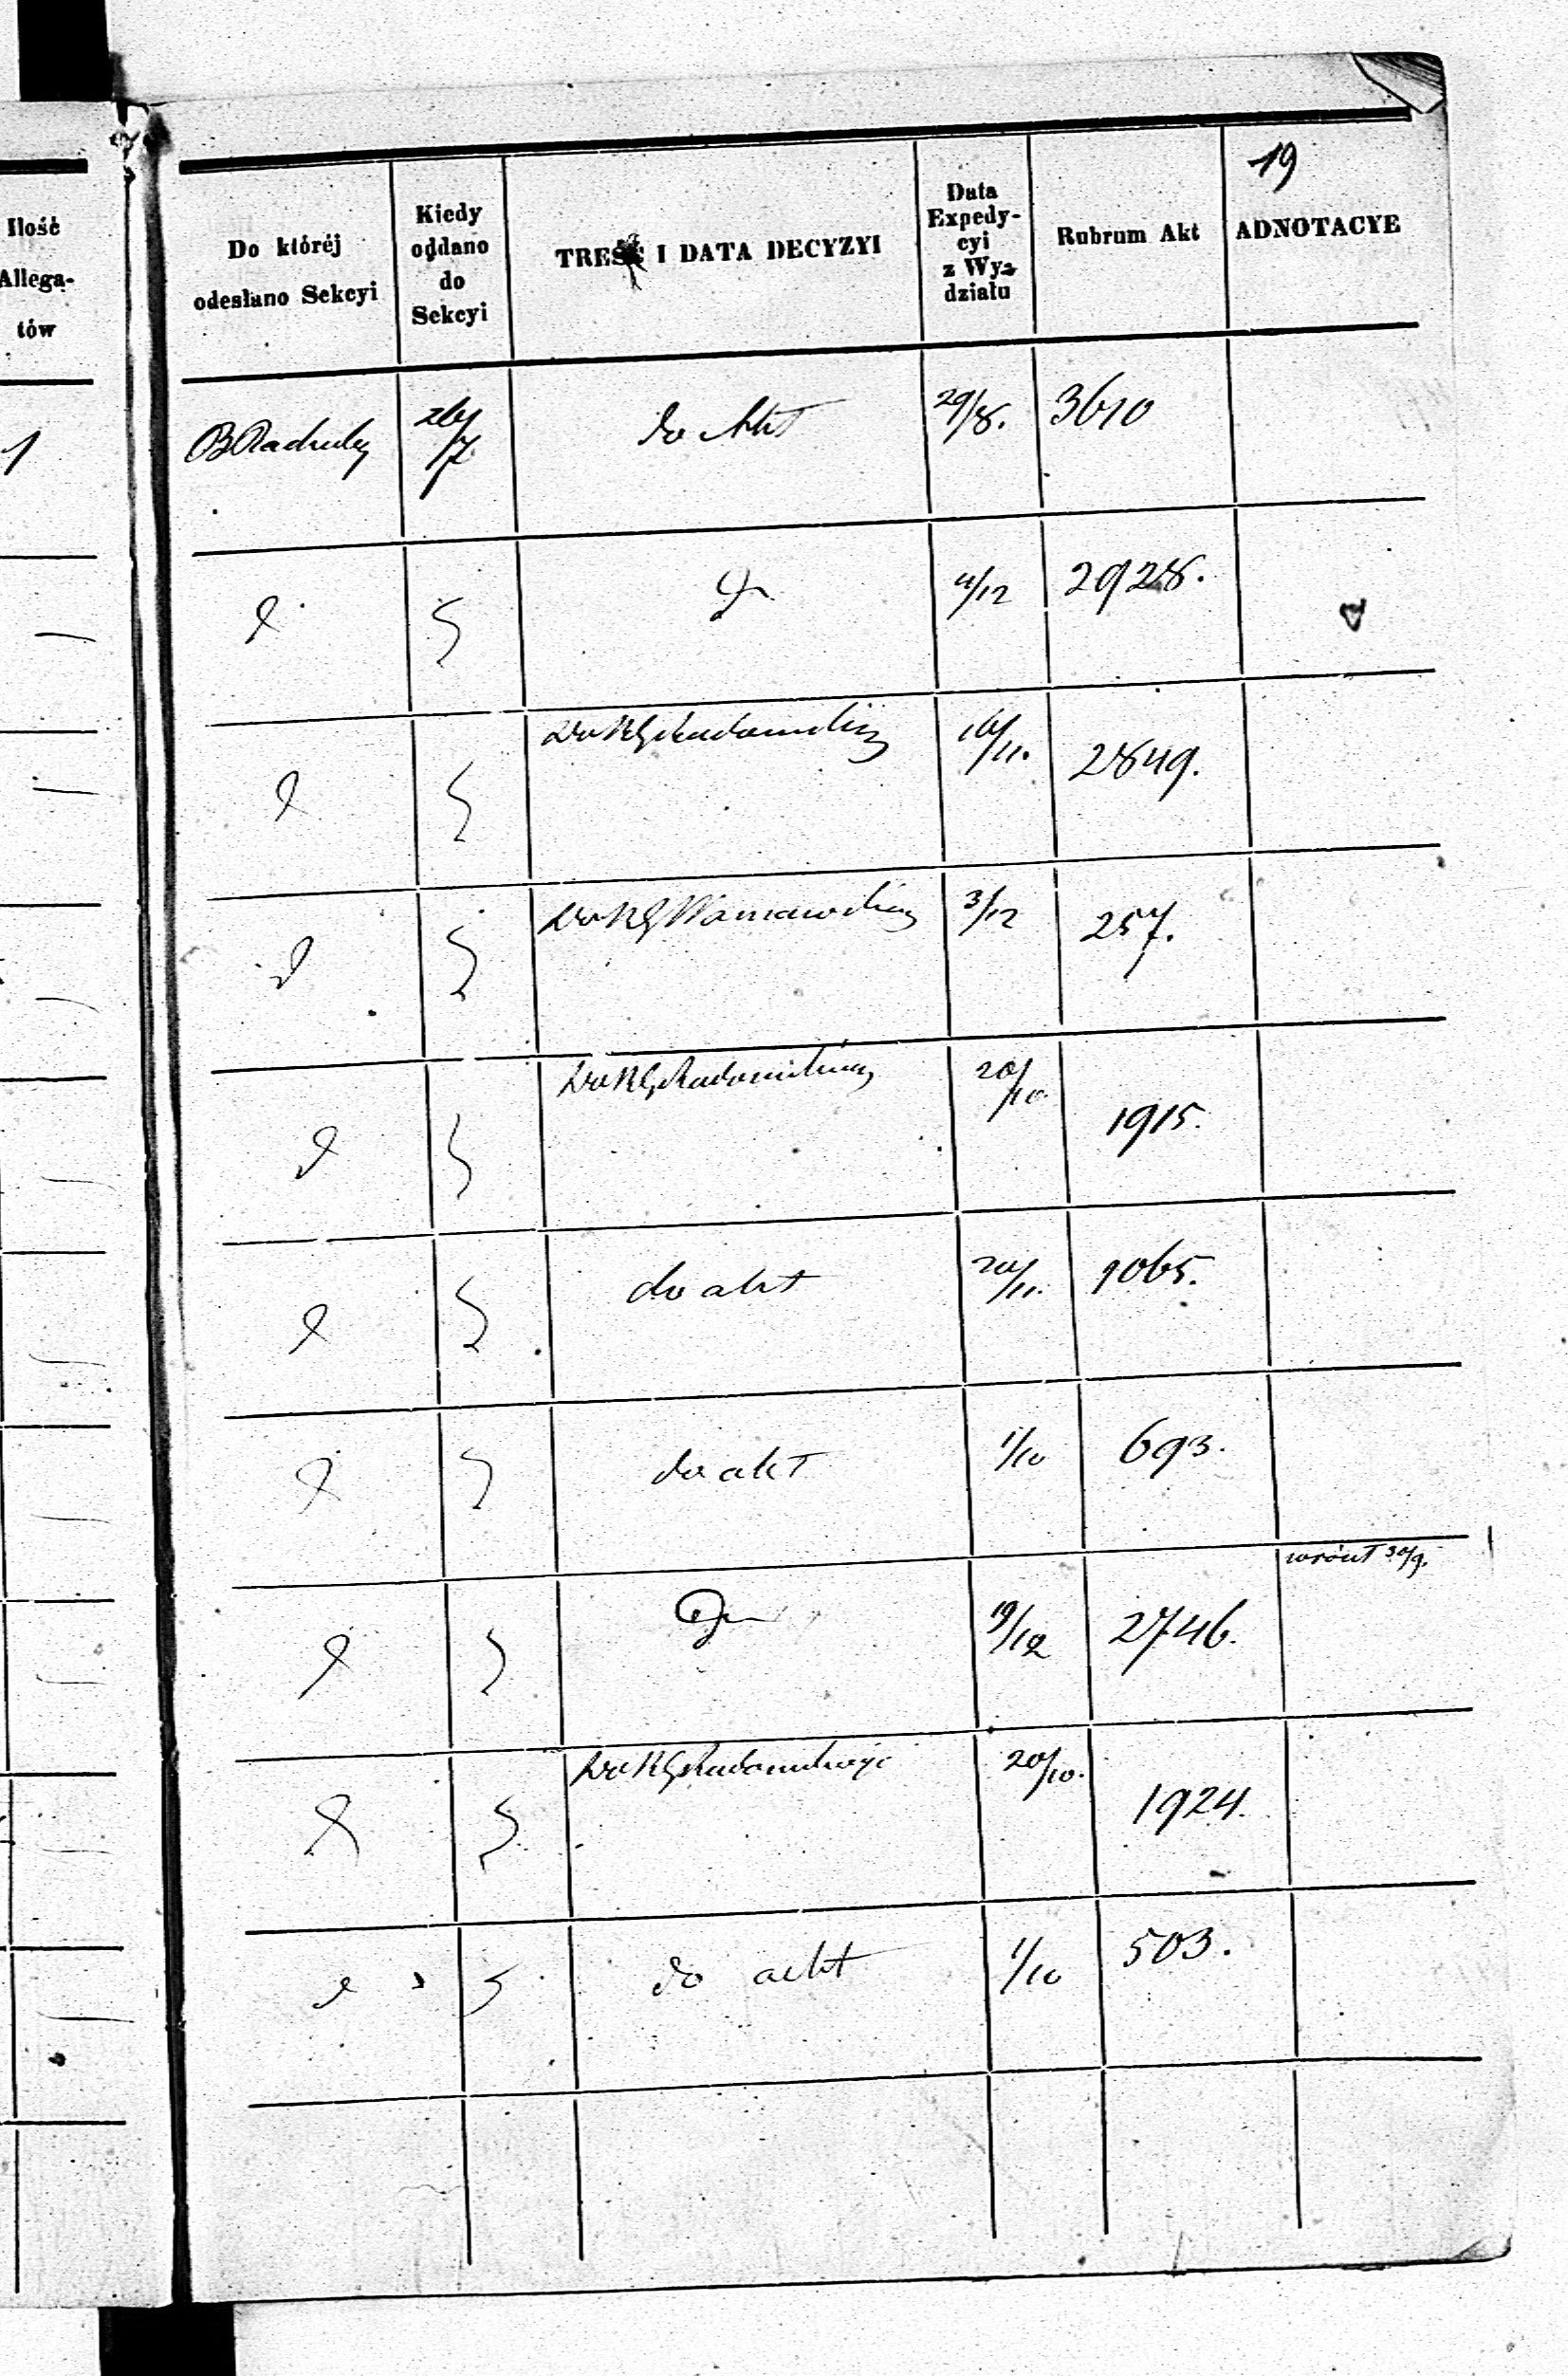 Ilość
Allega-
tów
1
19
Do któréj
odesłano Sekcyi
Kiedy
oddano
do
Sekcyi
TREŚĆ I DATA DECYZYI
Data
Expedy-
cyi
z Wy-
działu
Rubrum Akt
ADNOTACYE
26/7 do Akt 29/8. 3610
4/12 2928.
Do RG Radomskiej 16/11. 2849.
Do RG Warszawskiej 3/12 257.
Do RG Radomskiej 20/10. 1915.
do akt 20/11. 1065.
do akt 1/10 693.
wrócił 30/9.
19/12 2746.
Do RG Radomskiej 20/10. 1924.
do acht 1/10 503.